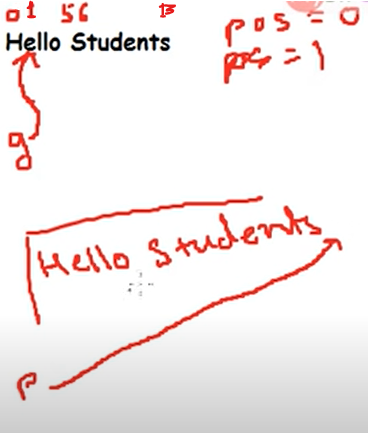 01 56 13 pos = 0
Hello Students
pos = 1
g
Hello Students
P